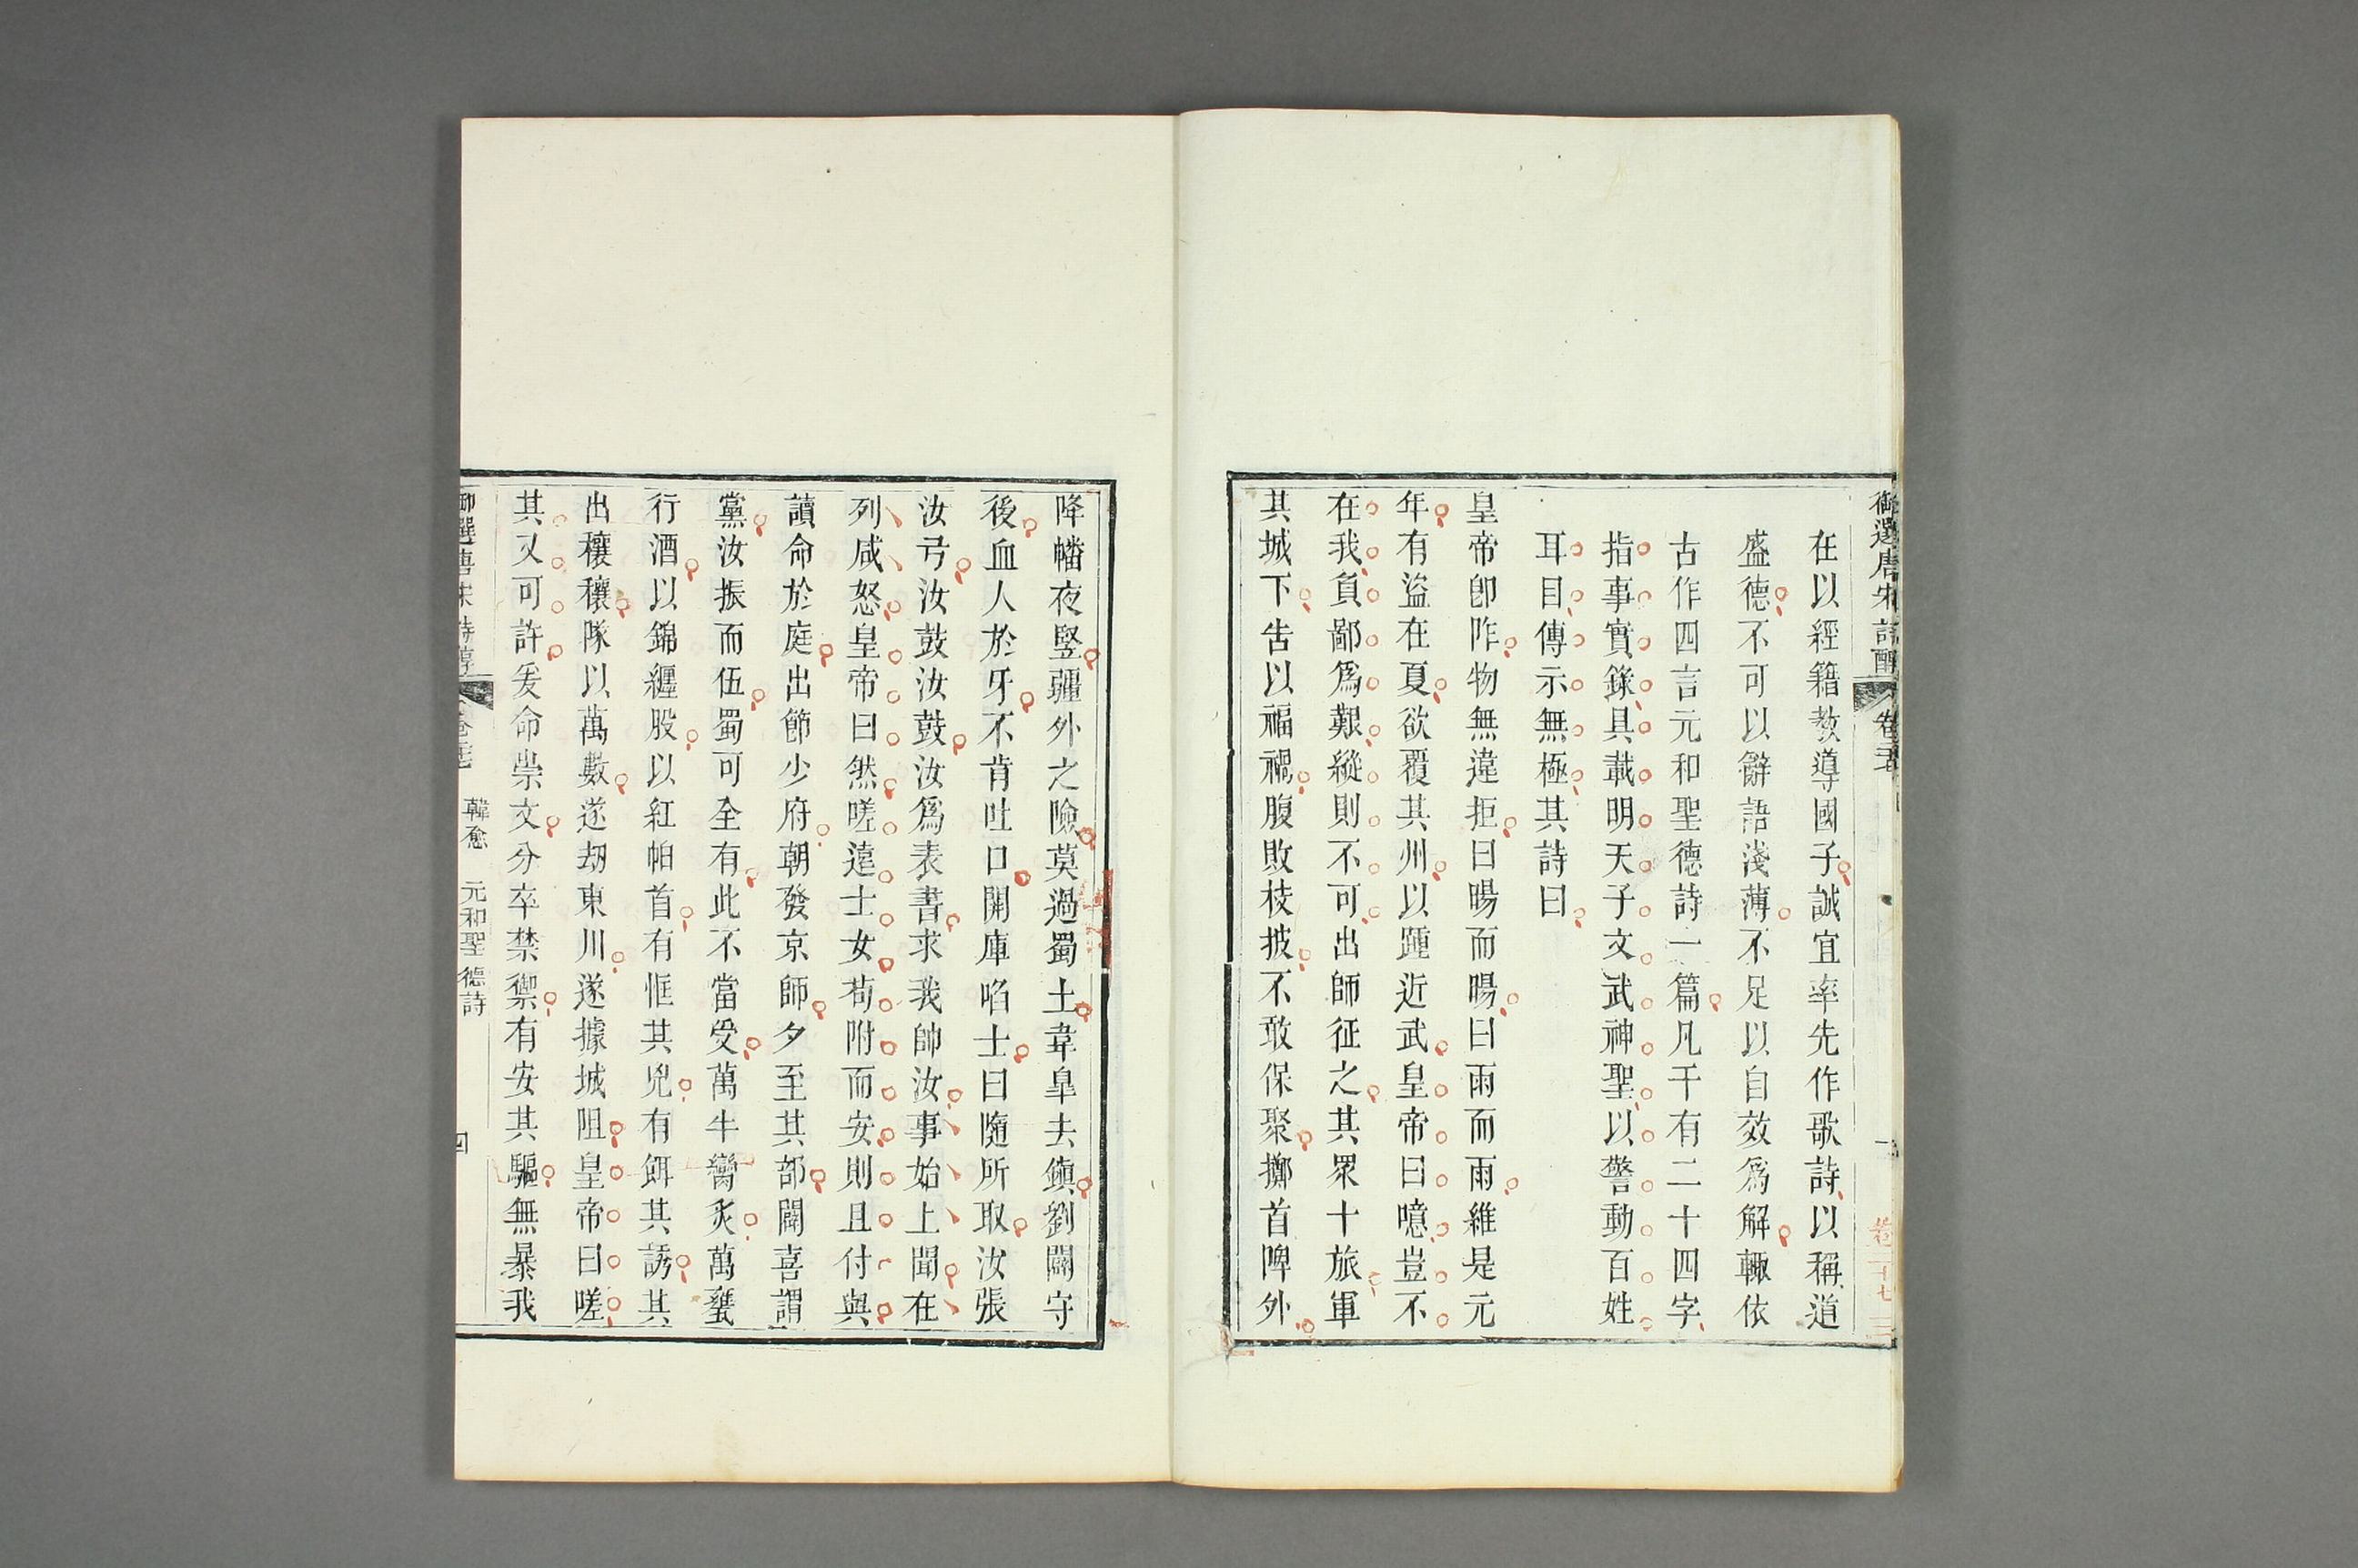 御選唐宋詩醇
在以經籍教導國子誠宜率先作歌詩以稱道
盛德不可以辭語淺薄不足以自效爲解輒依
古作四言元和聖德詩一篇凡千有二十四字
指事實錄具載明天子文武神聖以警動百姓
耳目傳示無極其詩曰
皇帝卽阼物無違拒曰暘而暘曰雨而雨維是元
年有盜在夏欲覆其州以踵近武皇帝曰噫豈不
在我負鄙爲艱縱則不可出師征之其眾十旅軍
其城下告以福禍腹敗枝披不敢保聚擲首陴外
降幡夜竪疆外之險莫過蜀土韋臯去鎮劉闢守
後血人於牙不肯吐口開庫啗士曰隨所取汝張
汝弓汝鼓汝鼓汝爲表書求我帥汝事始上聞在
列咸怒皇帝曰然嗟遠士女苟附而安則且付與
讀命於庭出節少府朝發京師夕至其部闢喜謂
黨汝振而伍蜀可全有此不當受萬牛臠炙萬甕
行酒以錦纏股以紅帕首有恇其兇有餌其誘其
出穰穰隊以萬數遂刼東川遂據城阻皇帝曰嗟
其又可許爰命崇文分卒禁禦有安其驅無暴我
御選唐宋詩醇 韓愈 元和聖德詩 四